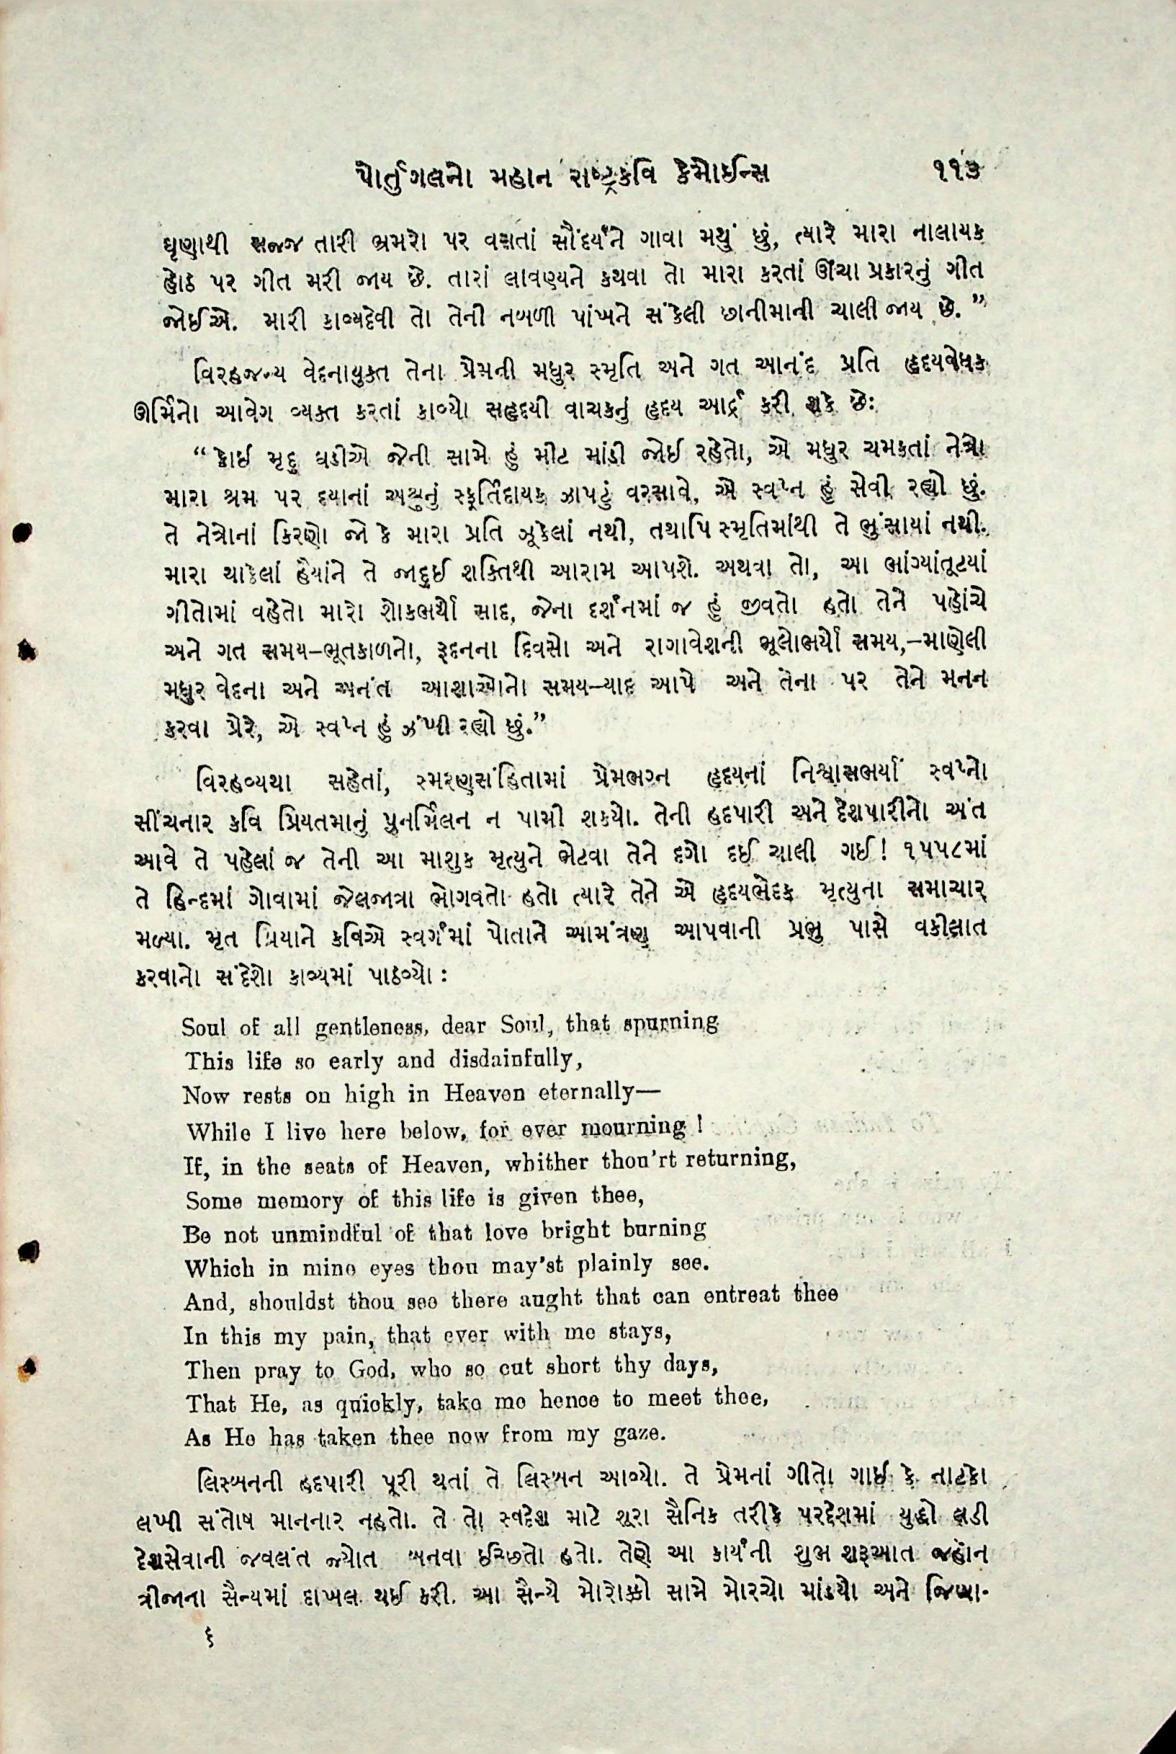 પોર્તુગલનો મહાન રાષ્ટ્રકવિ કેમોઈન્સ ૧૧૩
ઘૃણાથી સજ્જ તારી ભ્રમરો પર વસતાં સૌંદર્યને ગાવા મથું છું, ત્યારે મારા નાલાયક
હોઠ પર ગીત મરી જાય છે. તારાં લાવણ્યને કથવા તો મારા કરતાં ઊંચા પ્રકારનું ગીત
જોઈએ. મારી કાવ્યદેવી તો તેની નબળી પાંખને સંકેલી છાનીમાની ચાલી જાય છે.”
વિરહજન્ય વેદનાયુક્ત તેના પ્રેમની મધુર સ્મૃતિ અને ગત આનંદ પ્રતિ હૃદયવેધક
ઊર્મિનો આવેગ વ્યક્ત કરતાં કાવ્યો સહૃદયી વાચકનું હૃદય આર્દ્ર કરી શકે છે:
“કોઇ મૃદુ ઘડીએ જેની સામે હું મીટ માંડી જોઈ રહેતો, એ મધુર ચમકતાં નેત્રો
મારા શ્રમ પર દયાનાં અશ્રુનું સ્ફૂર્તિદાયક ઝાપટું વરસાવે, એ સ્વપ્ન હું સેવી રહ્યો છું.
તે નેત્રોનાં કિરણો જો કે મારા પ્રતિ ઝૂકેલાં નથી, તથાપિ સ્મૃતિમાંથી તે ભુંસાયાં નથી.
મારા થાકેલાં હૈયાંને તે જાદુઇ શક્તિથી આરામ આપશે. અથવા તો, આ ભાંગ્યાંતૂટ્યાં
ગીતોમાં વહેતો મારો શોકભર્યો સાદ, જેના દર્શનમાં જ હું જીવતો હતો તેને પહોંચે
અને ગત સમય–ભૂતકાળનો, રૂદનના દિવસો અને રાગાવેશની ભૂલોભર્યો સમય,–માણેલી
મધુર વેદના અને અનંત આશાઓનો સમય–યાદ આપે અને તેના પર તેને મનન
કરવા પ્રેરે, એ સ્વપ્ન હું ઝંખી રહ્યો છું.”
વિરહવ્યથા સહેતાં, સ્મરણસંહિતામાં પ્રેમભગ્ન હૃદયનાં નિશ્વાસભર્યાં સ્વપ્નો
સીંચનાર કવિ પ્રિયતમાનું પુનર્મિલન ન પામી શક્યો. તેની હદપારી અને દેશપારીનો અંત
આવે તે પહેલાં જ તેની આ માશુક મૃત્યુને ભેટવા તેને દગો દઈ ચાલી ગઈ! ૧૫૫૮માં
તે હિન્દમાં ગોવામાં જેલજાત્રા ભોગવતો હતો ત્યારે તેને એ હૃદયભેદક મૃત્યુના સમાચાર
મળ્યા. મૃત પ્રિયાને કવિએ સ્વર્ગમાં પોતાને આમંત્રણ આપવાની પ્રભુ પાસે વકીલાત
કરવાનો સંદેશો કાવ્યમાં પાઠવ્યો :
Soul of all gentleness, dear Soul, that spurning
This life so early and disdainfully,
Now rests on high in Heaven eternally—
While I live here below, for ever mourning !
If, in the seats of Heaven, whither thou'rt returning,
Some memory of this life is given thee,
Be not unmindful of that love bright burning
Which in mine eyes thou may'st plainly see.
And, shouldst thou see there aught that can entreat thee
In this my pain, that ever with me stays,
Then pray to God, who so cut short thy days,
That He, as quickly, take me hence to meet thee,
As He has taken thee now from my gaze.
લિસ્બનની હદપારી પૂરી થતાં તે લિસ્બન આવ્યો. તે પ્રેમનાં ગીતો ગાઈ કે નાટકો
લખી સંતોષ માનનાર નહતો. તે તો સ્વદેશ માટે શૂરા સૈનિક તરીકે પરદેશમાં યુદ્ધો લડી
દેશસેવાની જવલંત જ્યોત બનવા ઇચ્છતો હતો. તેણે આ કાર્યની શુભ શરૂઆત જ્હોન
ત્રીજાના સૈન્યમાં દાખલ થઈ કરી. આ સૈન્યે મોરોક્કો સામે મોરચો માંડ્યો અને જિબ્રા-
૬